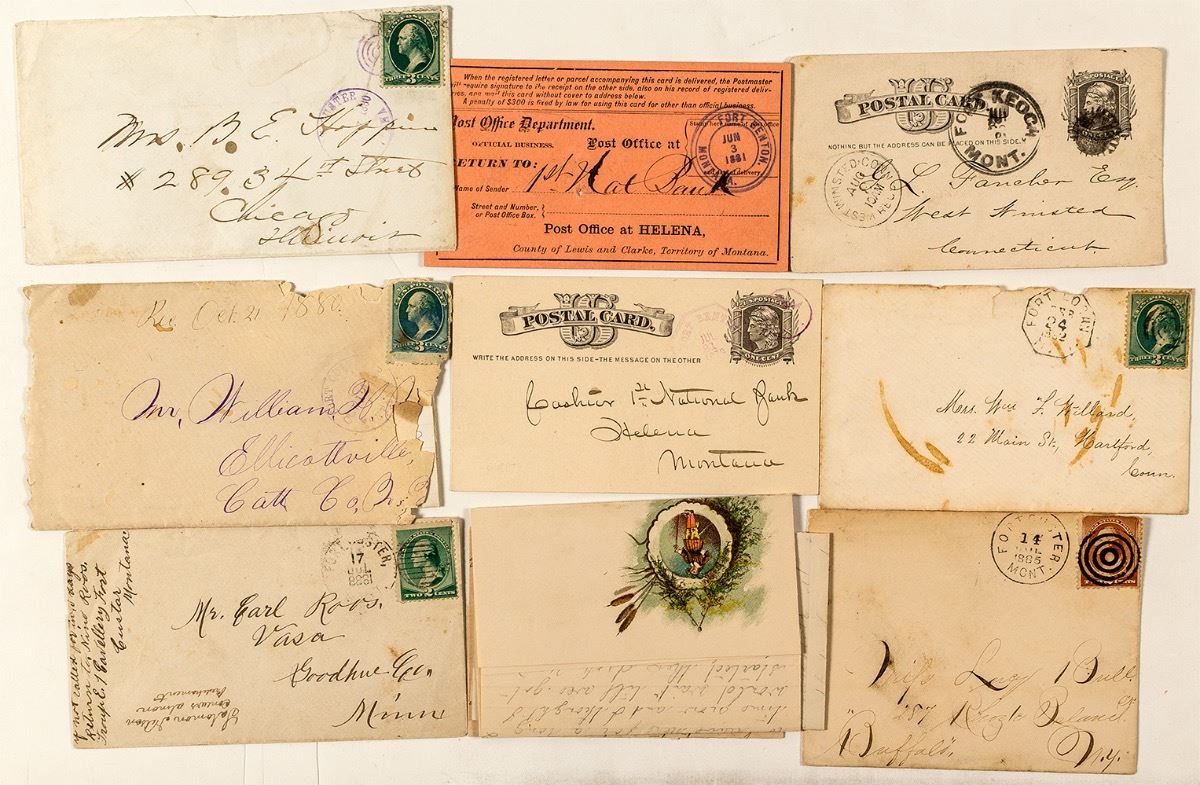 THREE 3 CENTS
Mrs. B. E. Hopkins
# 289. 34th Street
Chicago
Illinois
When the registered letter or parcel accompanying this card is delivered, the Postmaster
will require signature to the receipt on the other side, also on his record of registered deliv-
eries, and mail this card without cover to address below.
A penalty of $300 is fixed by law for using this card for other than official business.
Post Office Department.
OFFICIAL BUSINESS.
Post Office at
FORT BENTON.
JUN
3
1881
MON
RETURN TO:
1st Nat Bank
Name of Sender
Street and Number,
or Post Office Box.
Post Office at HELENA,
County of Lewis and Clarke, Territory of Montana.
US
POSTAL CARD.
NOTHING BUT THE ADDRESS CAN BE PLACED ON THIS SIDE.
FORT KEOGH
MONT.
WEST WINSTED CONN
AUG
10AM
REC'D
L. Fancher Esq.
West Winsted
Connecticut.
Rec Oct. 21 1880
THREE 3 CENTS
Mr, William
Ellicottville,
Catt Co,
US
POSTAL CARD.
U.S. POSTAGE
ONE CENT
WRITE THE ADDRESS ON THIS SIDE–THE MESSAGE ON THE OTHER
Cashier 1st National Bank
Helena
Montana
FORT
24
THREE 3 CENTS
Mess. Wm F. Willard,
22 Main St., Hartford,
Conn.
If not called for in 10 days
Return to Nine Roos,
Troup E, 1 Cavellery Fort
Custar
Montana
CUSTER,
17
JUL
TWO 2 CENTS
Mr. Earl Roos.
Vasa
Goodhue Co,
Minn
Salomon
would wait till we got
started then
FORT CUSTER
14
JUL
1885
MONT.
Miss Lucy Bull
287
Buffalo,
N.Y.